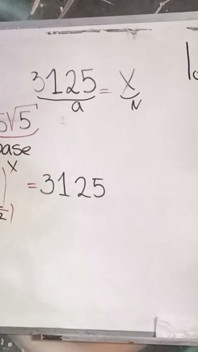 3125 = x
a N
5√5
base
x
= 3125